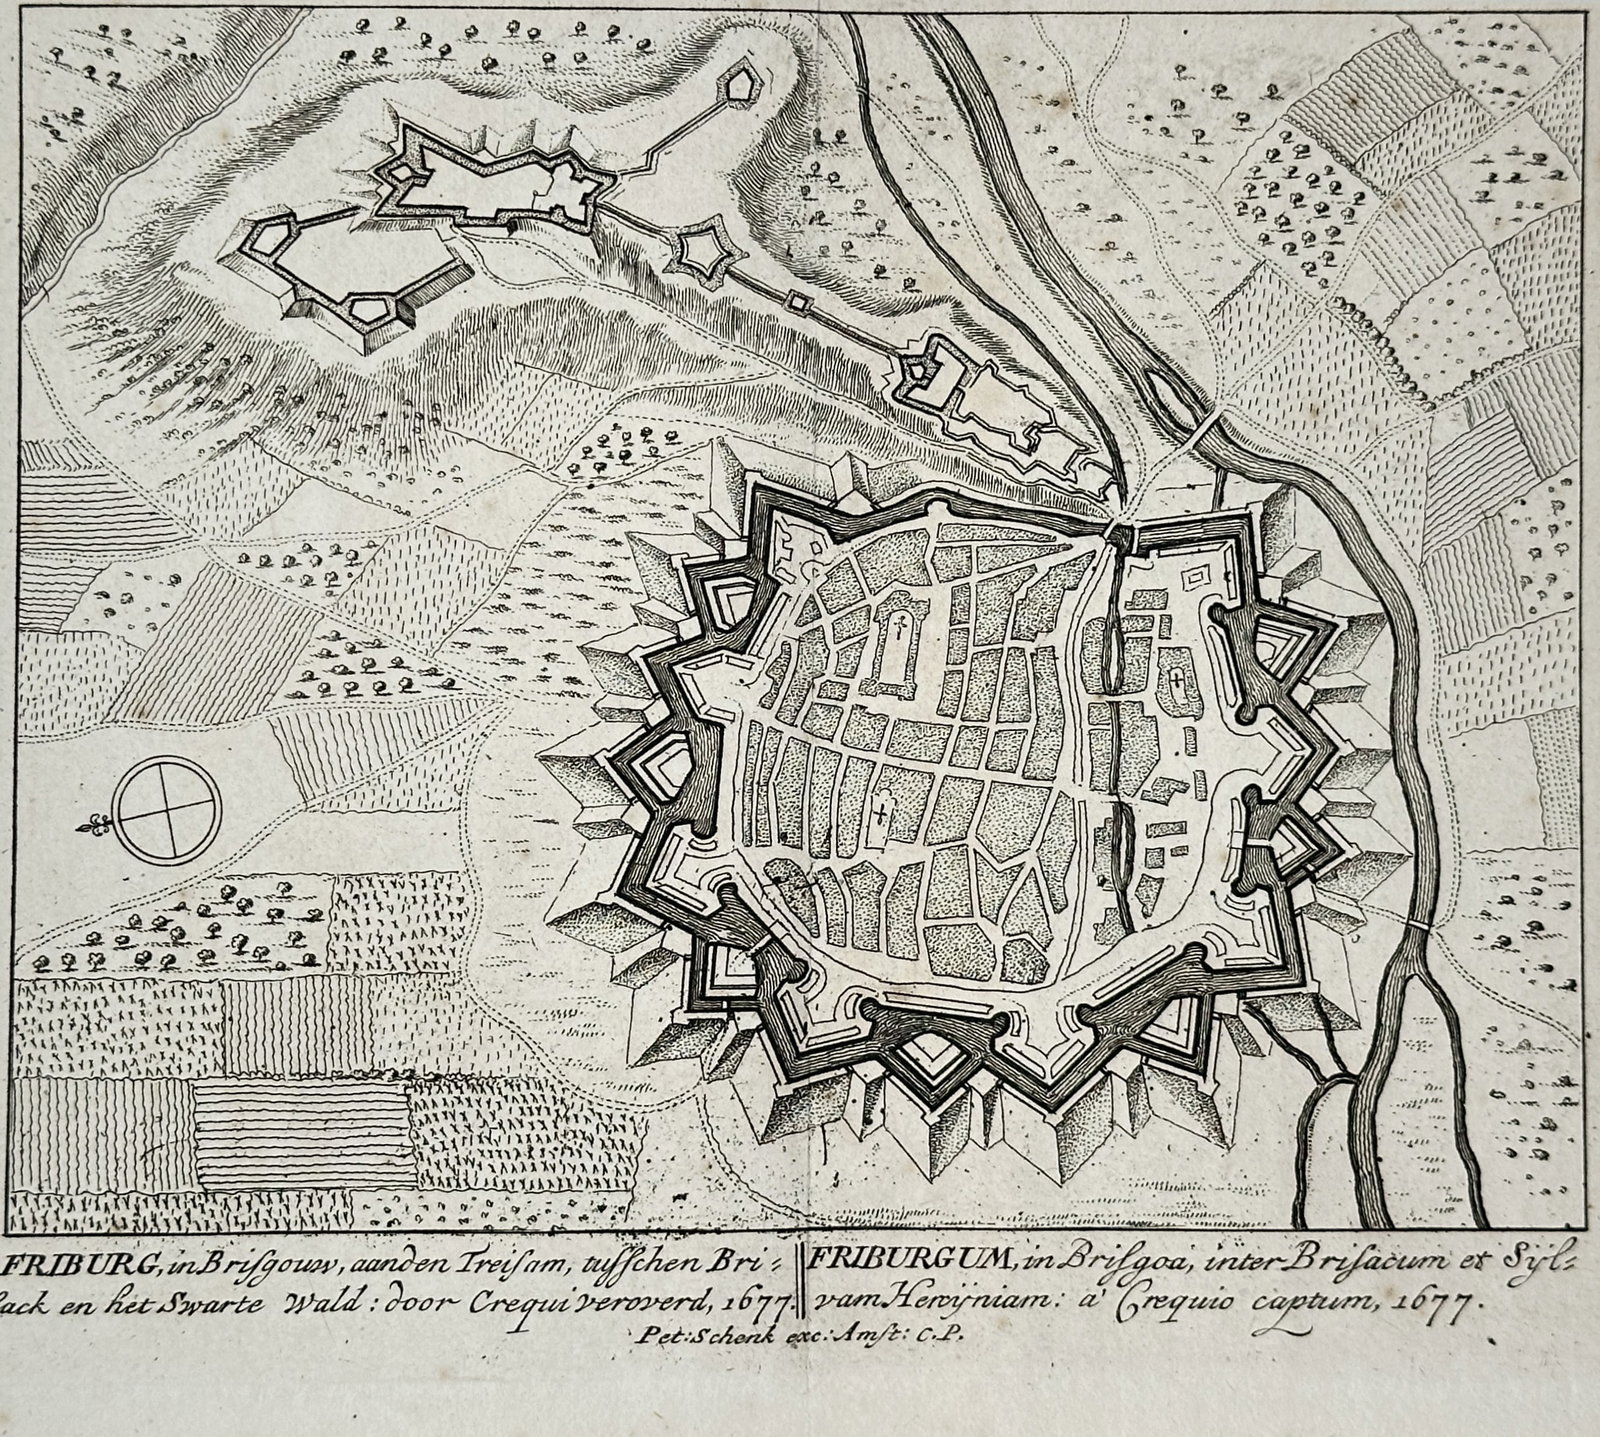 FRIBURG, in Brisgouw, aanden Treisam, tusschen Bri:
sack en het Swarte Wald: door Crequi veroverd, 1677.
FRIBURGUM, in Brisgoa, inter Brisacum et Syl:
vam Hercyniam: a' Crequio captum, 1677.
Pet: Schenk exc: Amst: C.P.